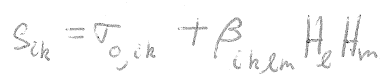 S_{ik} = σ_{0,ik} + β_{iklm} H_l H_m